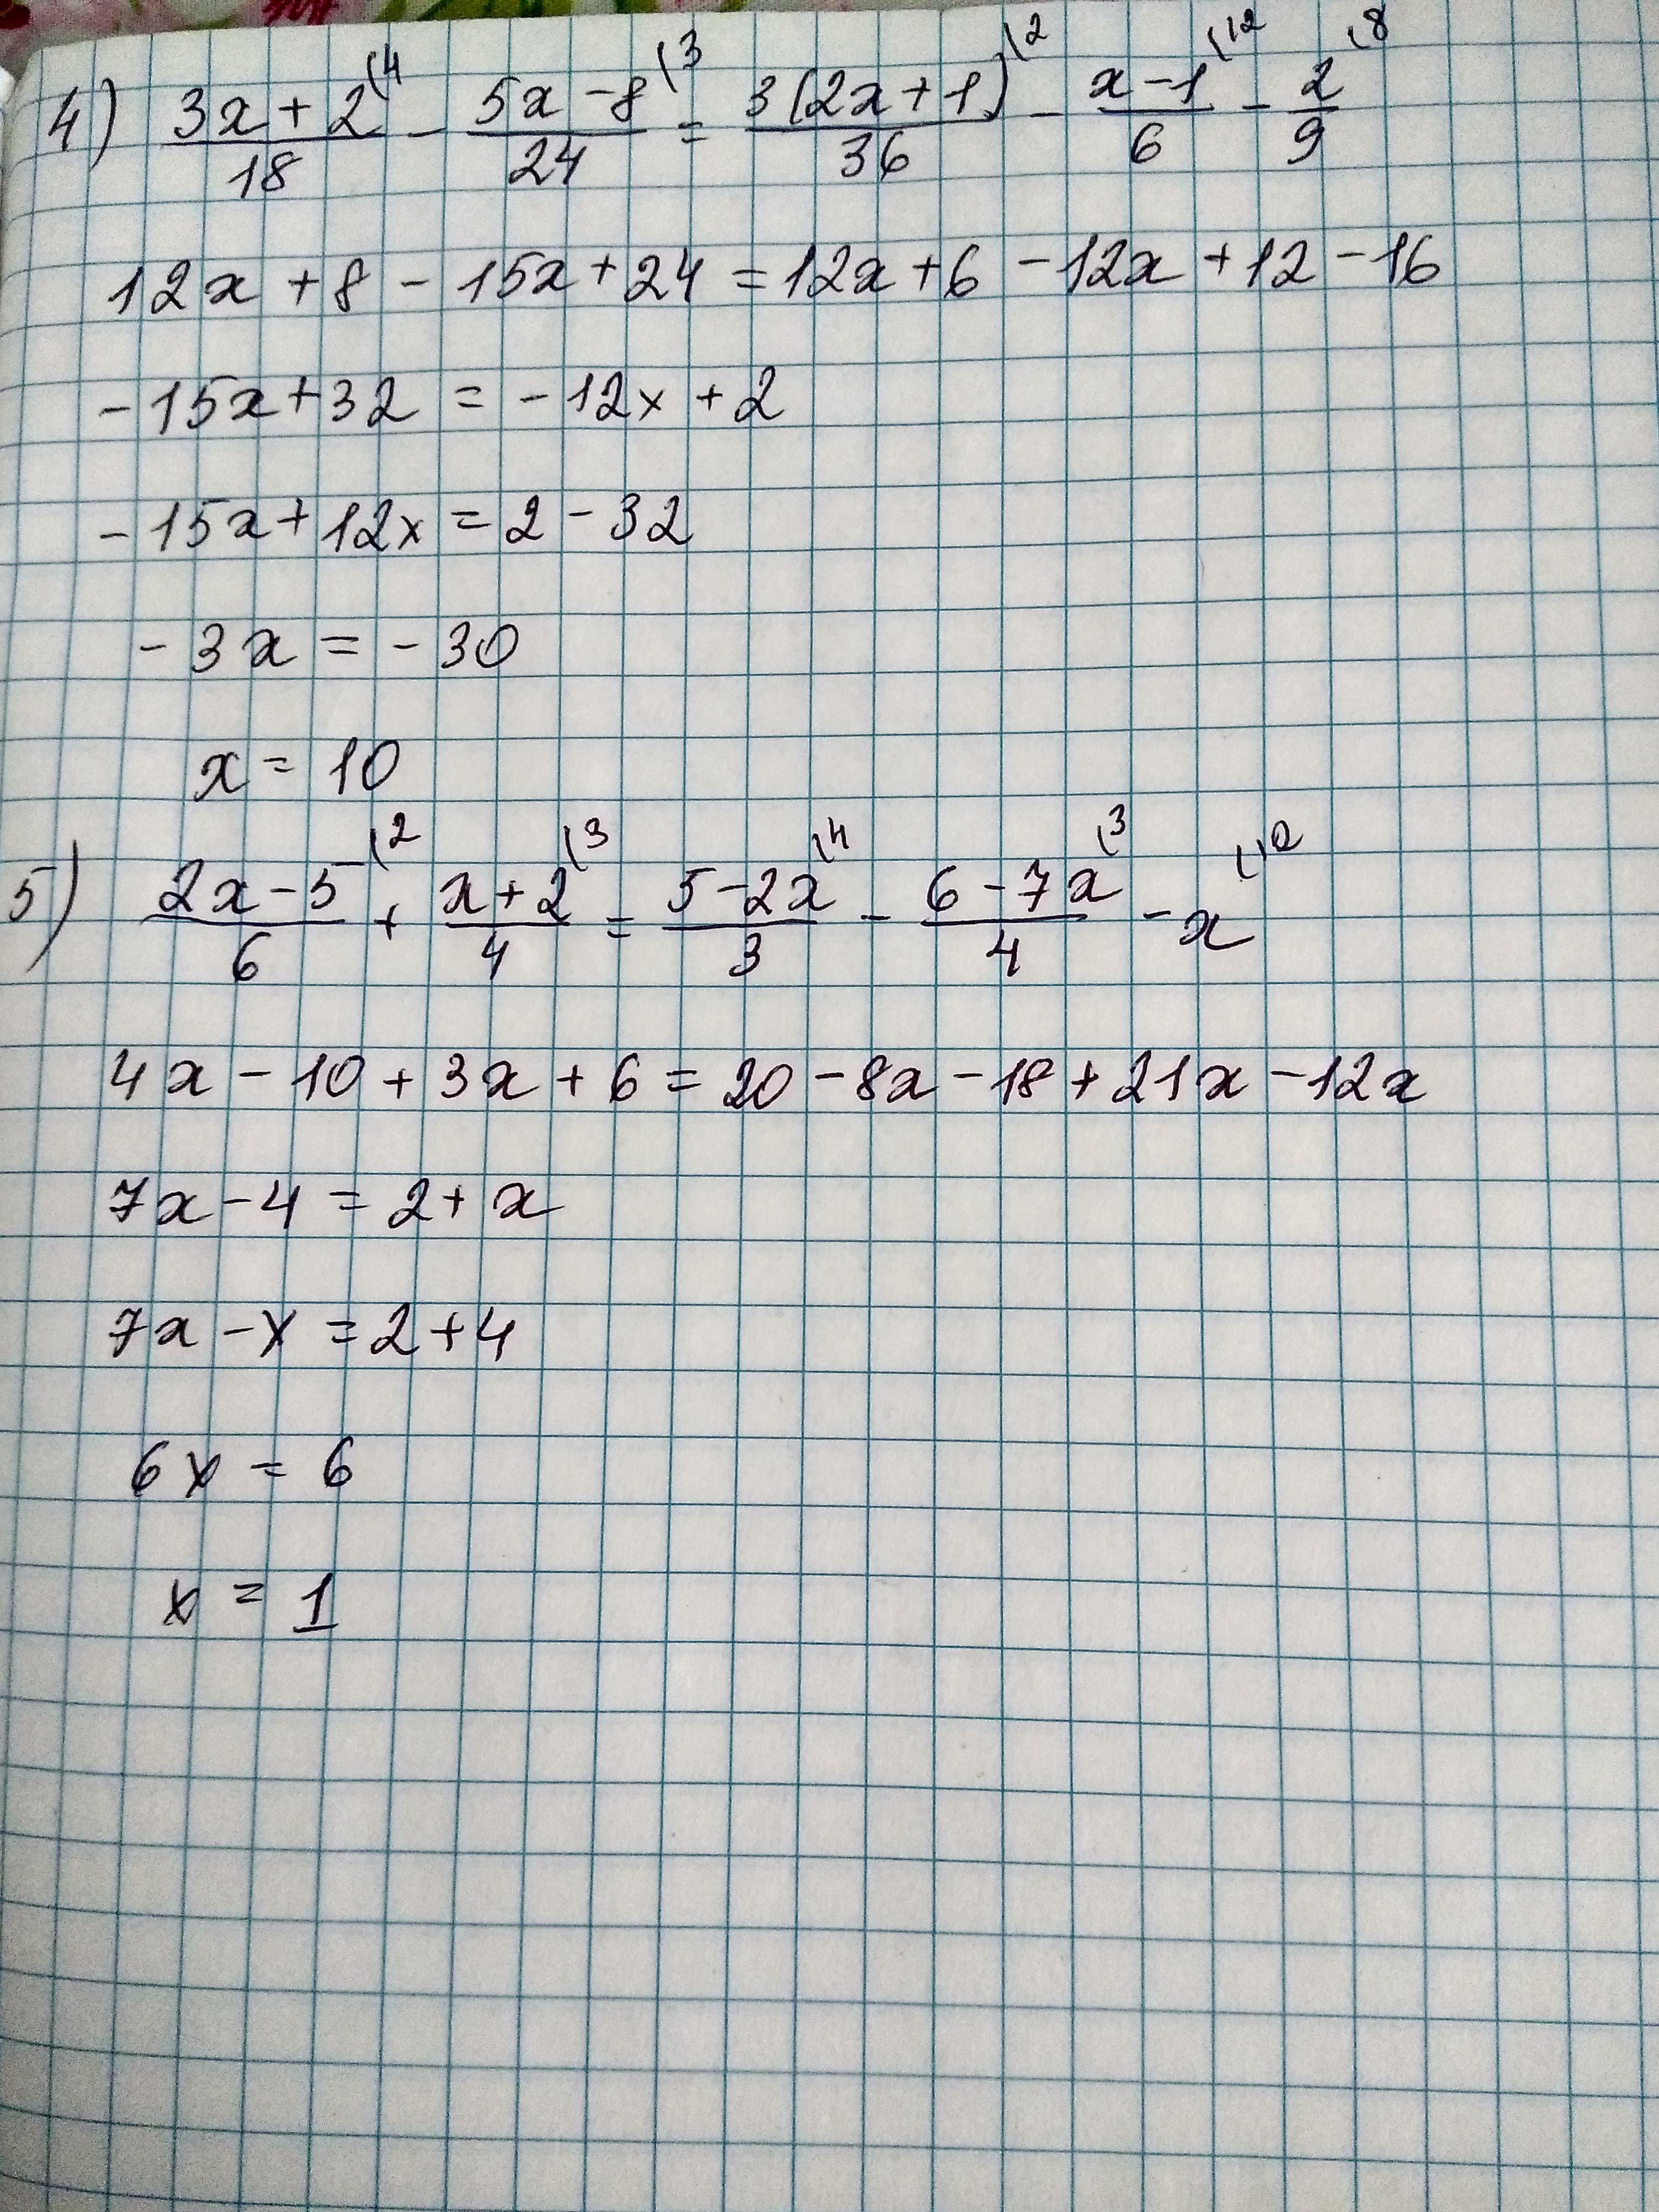 4) (3x+2)/18 (4 - (5x-8)/24 (3 = 3(2x+1)/36 (2 - (x-1)/6 (12 - 2/9 (8
12x+8-15x+24=12x+6-12x+12-16
-15x+32=-12x+2
-15x+12x=2-32
-3x=-30
x=10
5) (2x-5)/6 (2 + (x+2)/4 (3 = (5-2x)/3 (4 - (6-7x)/4 (3 - x (12
4x-10+3x+6=20-8x-18+21x-12x
7x-4=2+x
7x-x=2+4
6x=6
x=1